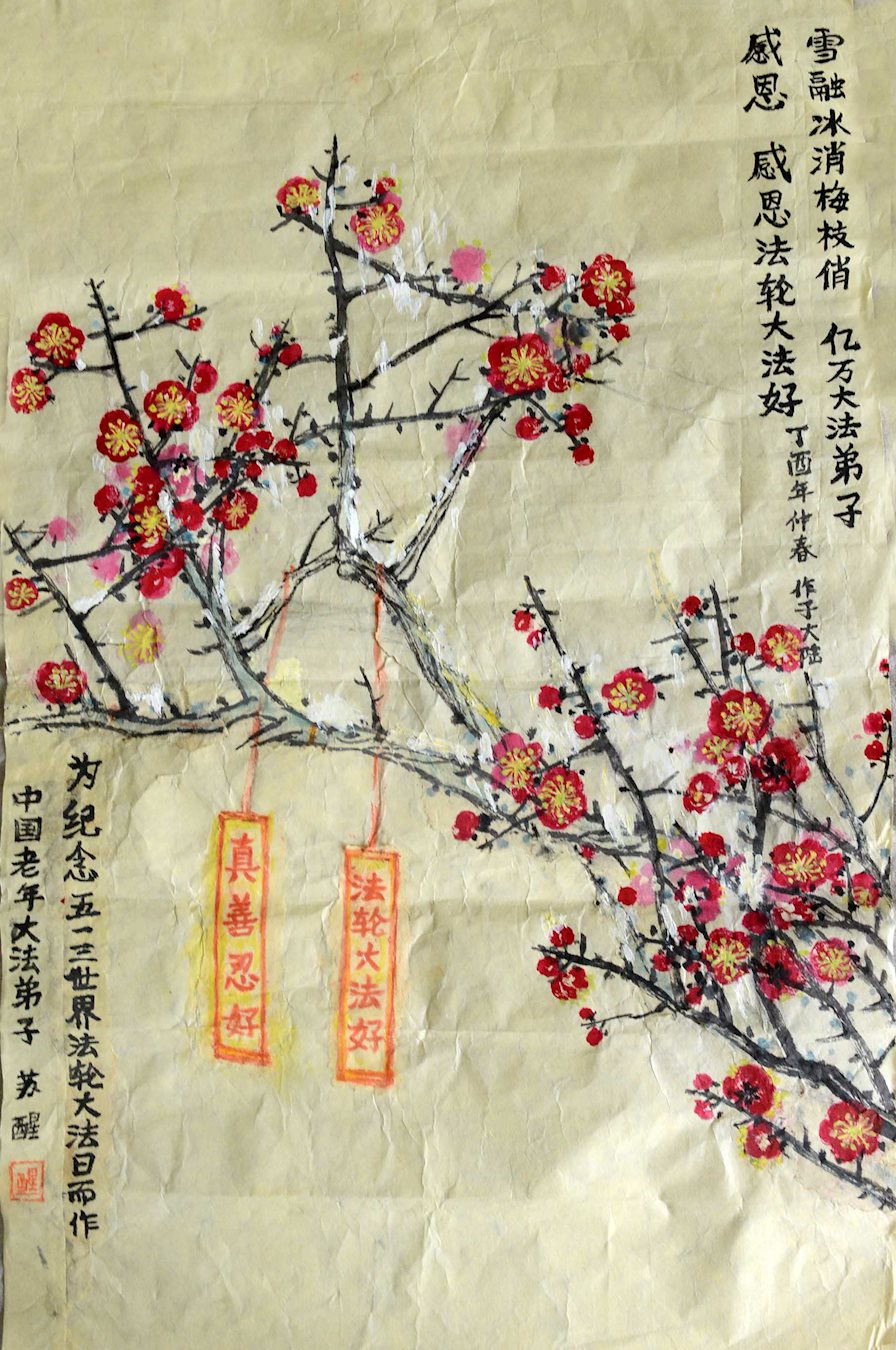 雪融冰消梅枝俏 亿万大法弟子
感恩 感恩法轮大法好
丁酉年仲春 作于大陆
法轮大法好
真善忍好
为纪念五一三世界法轮大法日而作
中国老年大法弟子 苏醒
醒